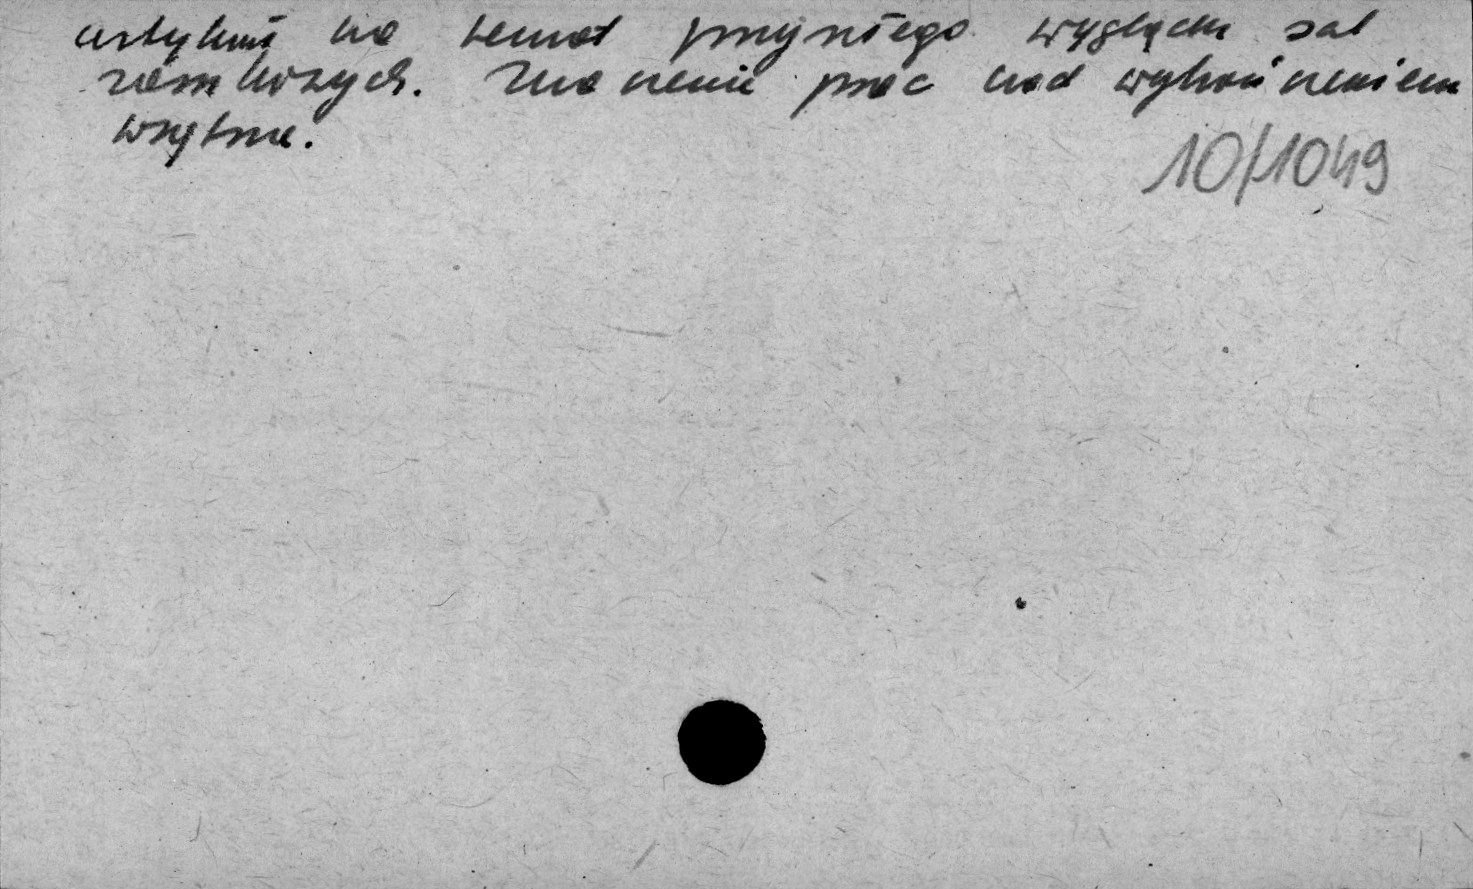 artykuł na temat przyszłego wyglądu sal
zamkowych. Znaczenie prac nad wykończeniem
wnętrza.
10/1049